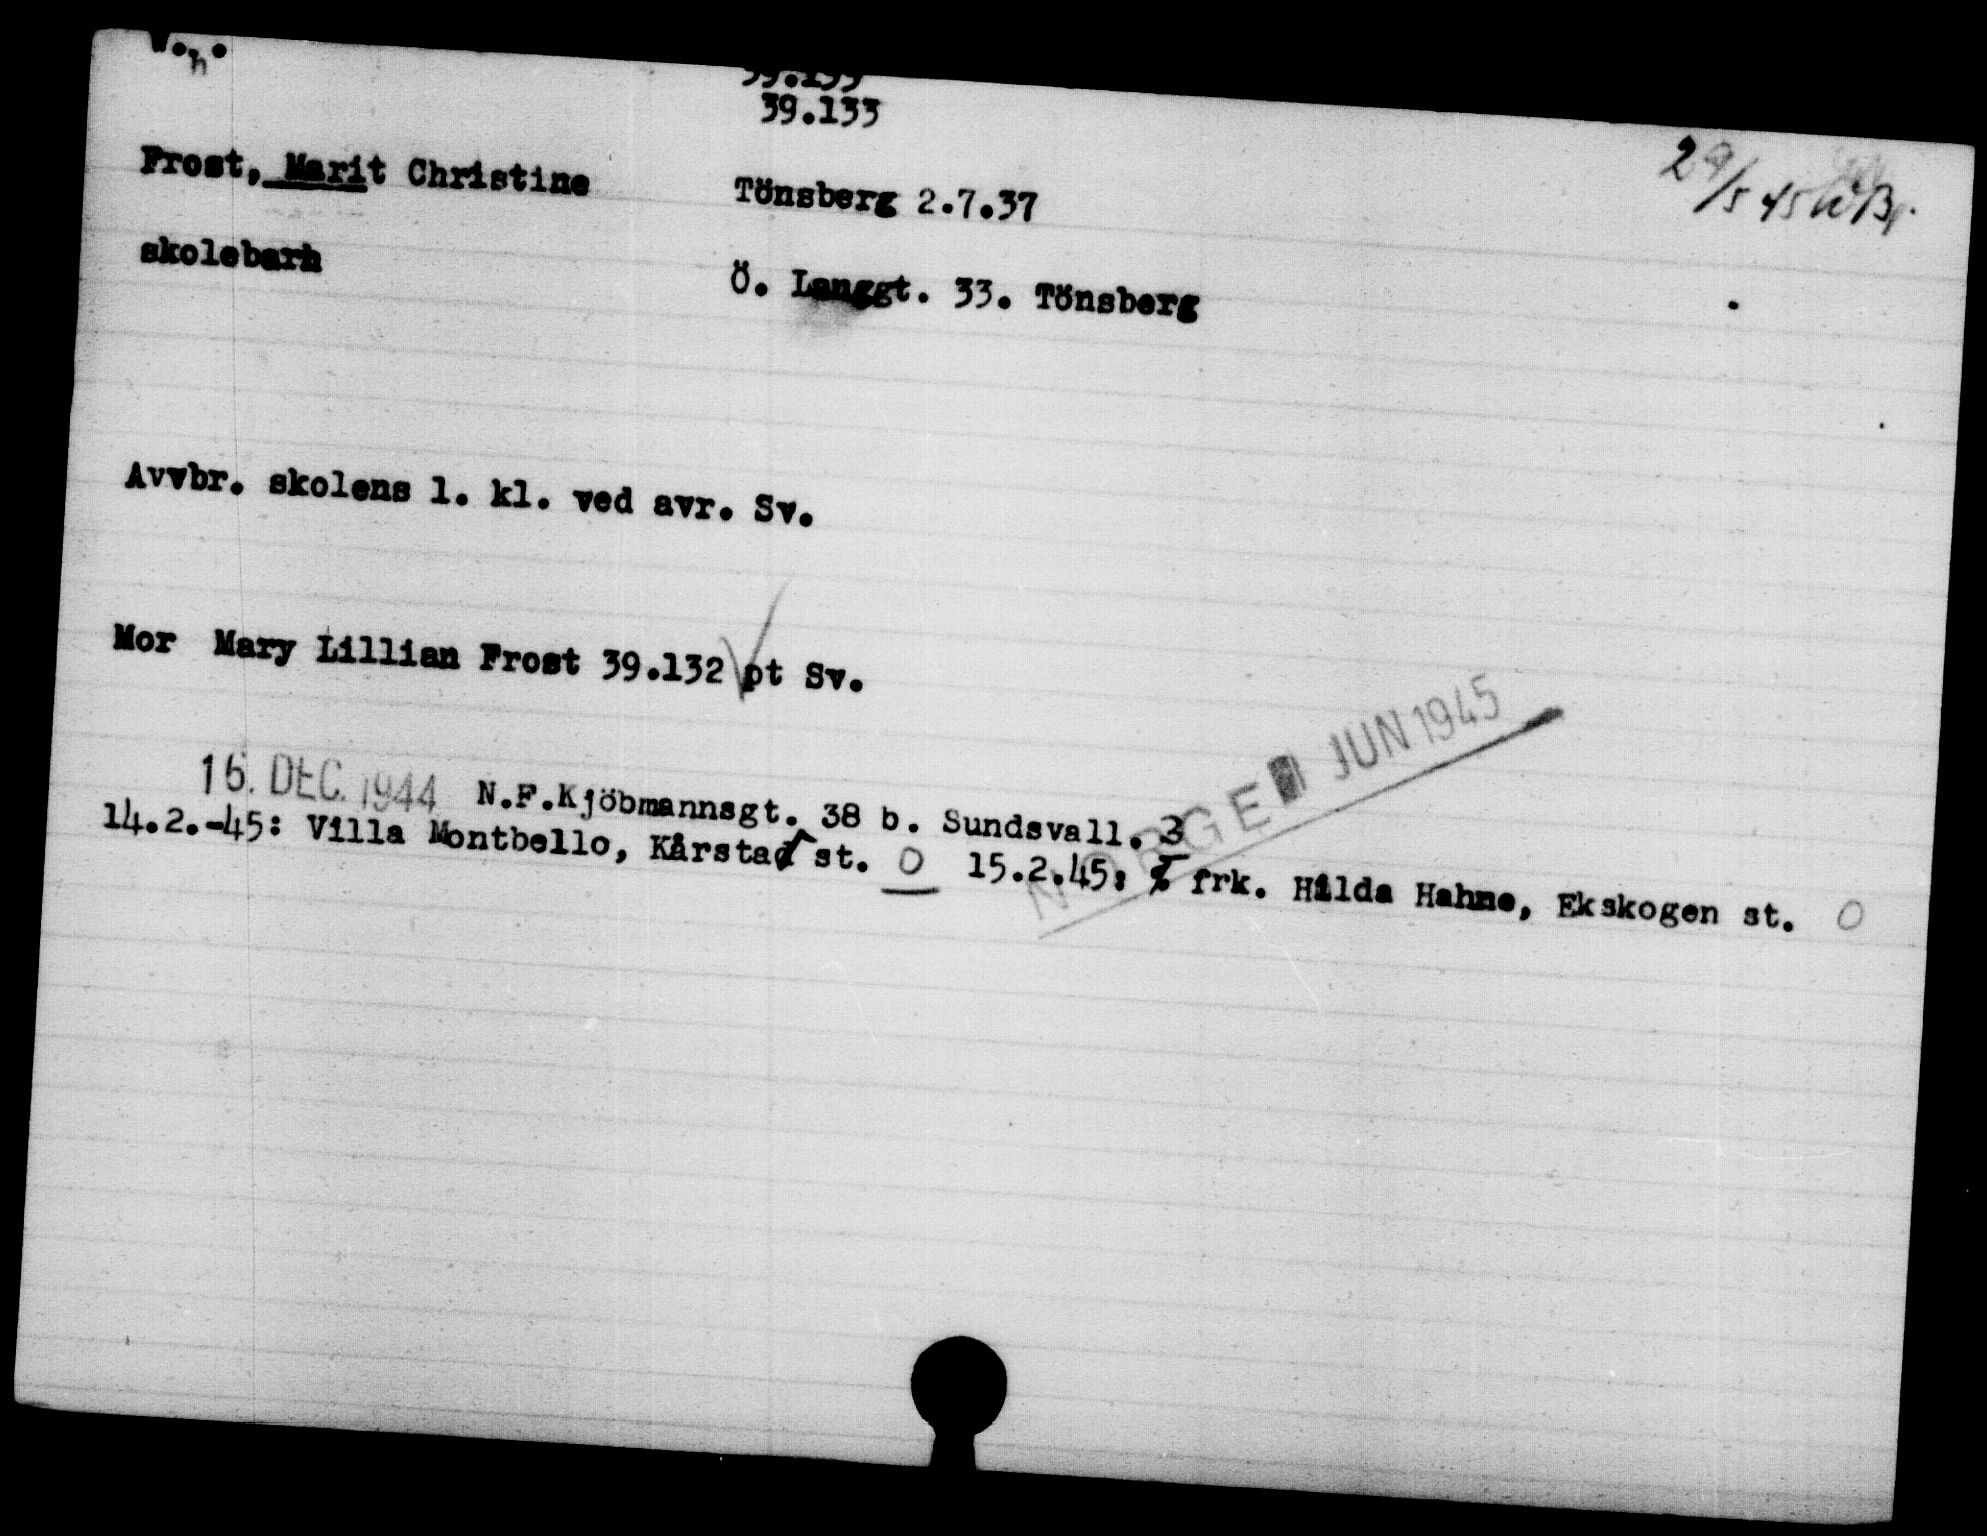 39.133
39.133
Frost, Marit Christine Tönsberg 2.7.37 29/5 45
skolebarn Ö. Langgt. 33. Tönsberg
Avvbr. skolens 1. kl. ved avr. Sv.
Mor Mary Lillian Frost 39.132 pt Sv.
NORGE JUN 1945
16. DEC. 1944 N.F.Kjöbmannsgt. 38 b. Sundsvall. 3
14.2.-45: Villa Montbello, Kårstad st. O 15.2.45: % frk. Hilda Hahne, Ekskogen st. O